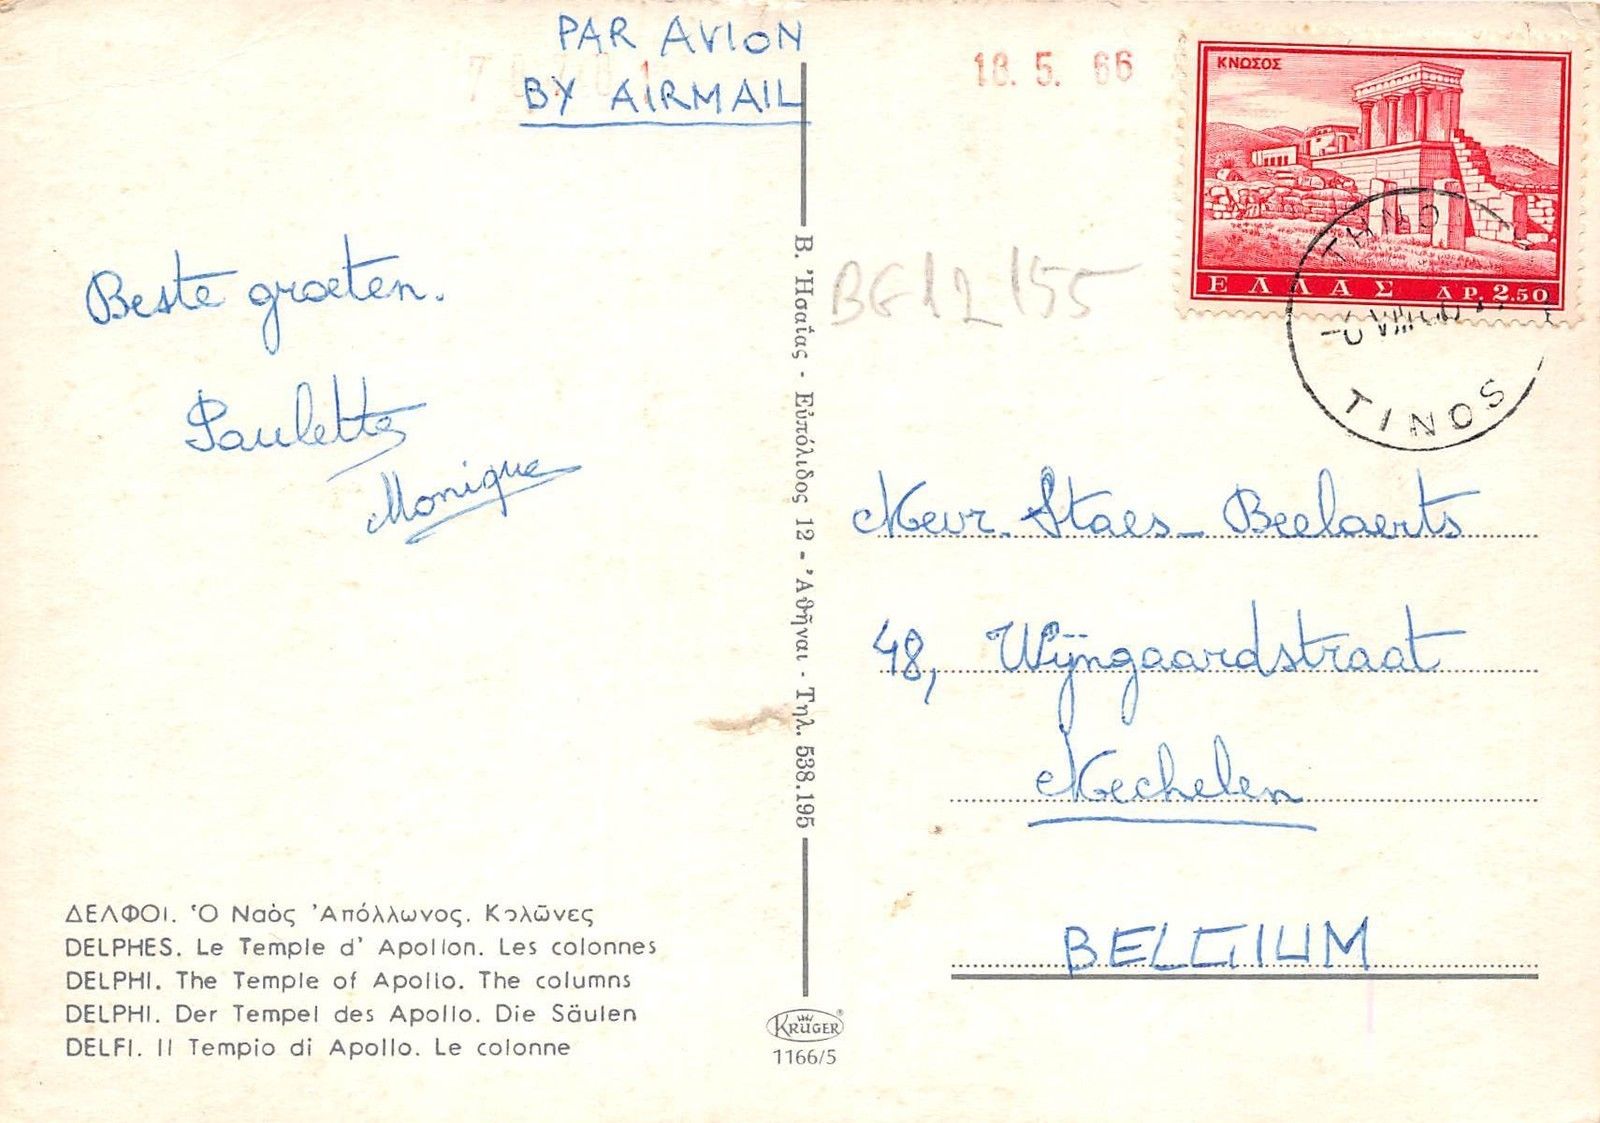 PAR AVION
BY AIRMAIL
18. 5. 66
ΚΝΩΣΟΣ
ΕΛΛΑΣ ΔΡ. 2.50
ΤΗΝΟ
TINOS
BG12/55
Beste groeten.
Paulette
Monique
Β. Ἡσαΐας - Εὐπόλιδος 12 - Ἀθῆναι - Τηλ. 538.195
Mevr. Staes-Beelaerts
48, Wijngaardstraat
Mechelen
BELGIUM
ΔΕΛΦΟΙ. Ὁ Ναὸς Ἀπόλλωνος. Κολῶνες
DELPHES. Le Temple d' Apollon. Les colonnes
DELPHI. The Temple of Apollo. The columns
DELPHI. Der Tempel des Apollo. Die Säulen
DELFI. Il Tempio di Apollo. Le colonne
KRÜGER®
1166/5